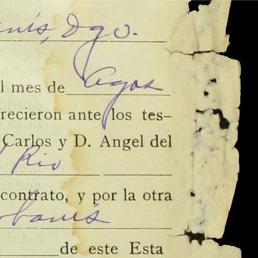 anís, Dgo.
l mes de Agos
recieron ante los tes-
Carlos y D. Angel del
Rio
contrato, y por la otra
banis
de este Esta